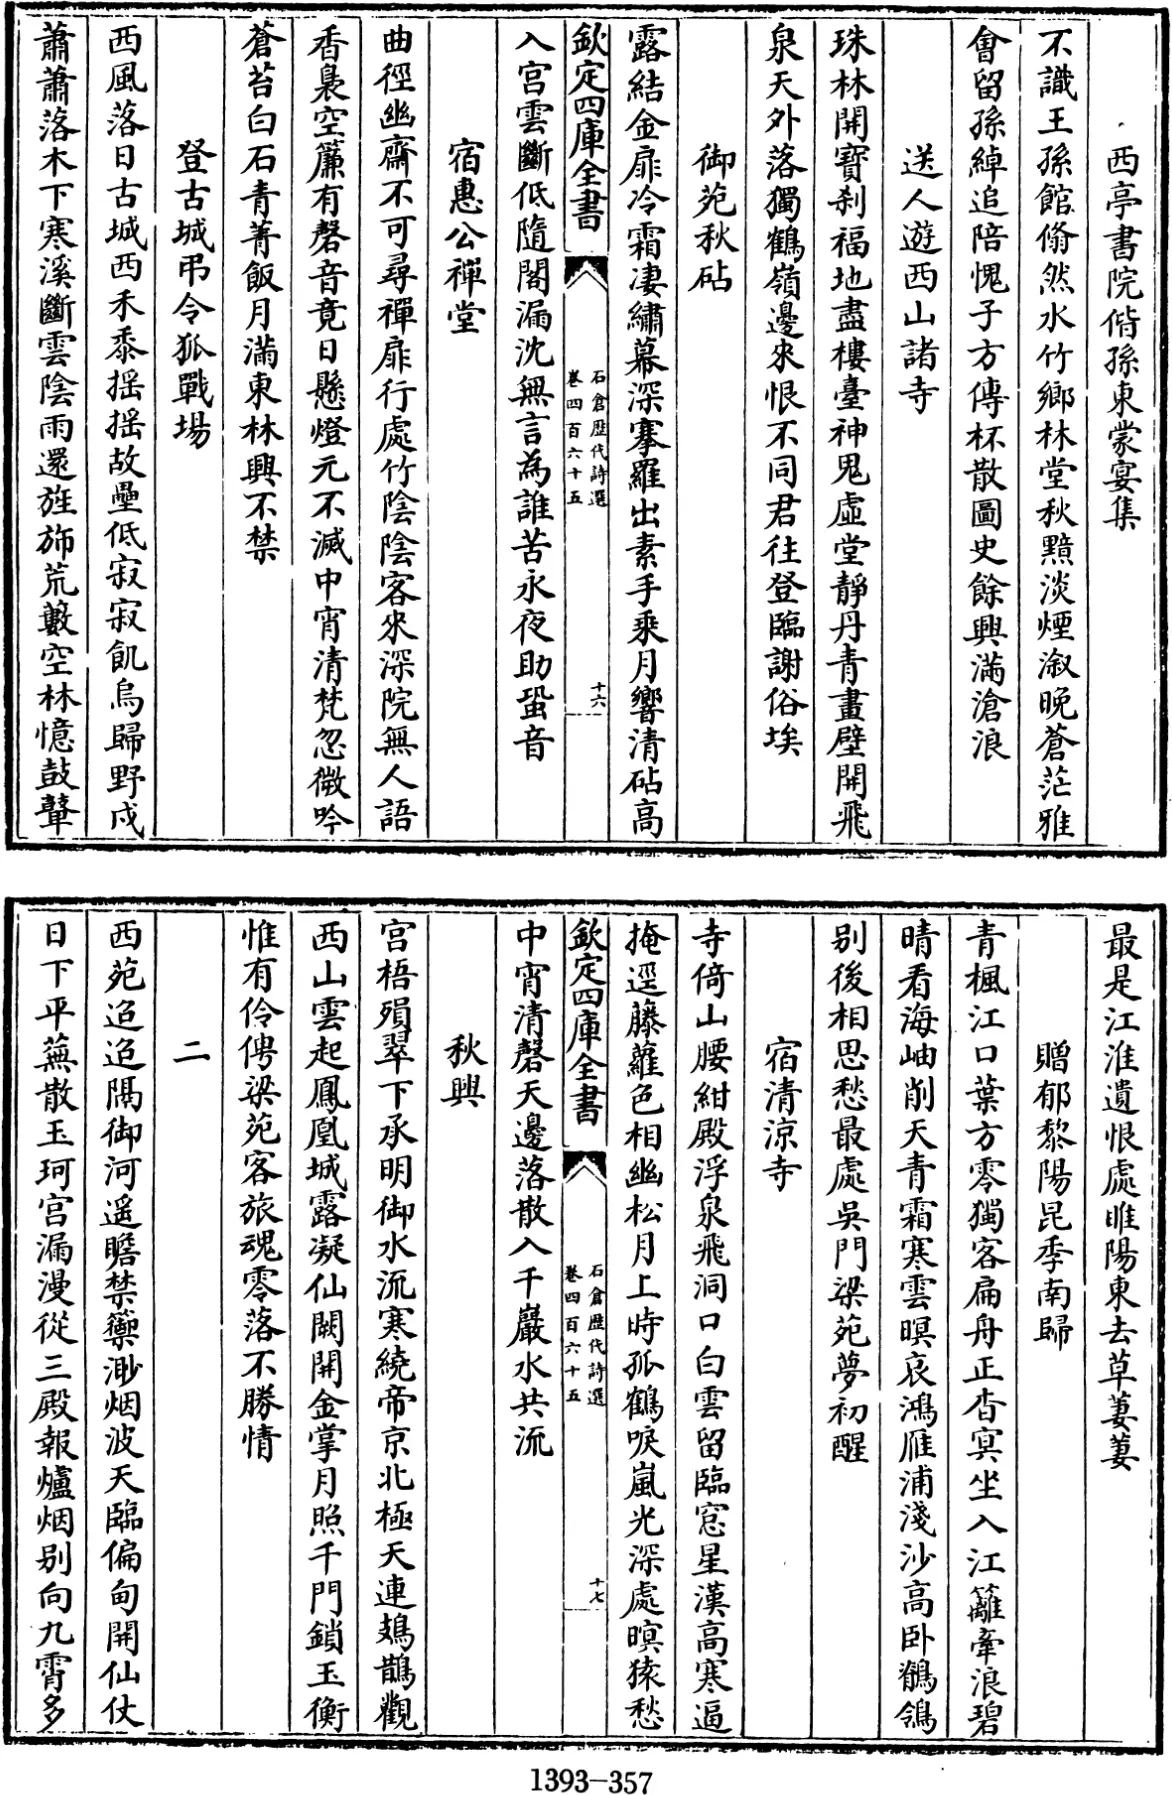 西亭書院偕孫東蒙宴集
不識王孫館翛然水竹鄉林堂秋黯淡煙漵晚蒼茫雅
會留孫綽追陪愧子方傳杯散圖史餘興滿滄浪
送人遊西山諸寺
珠林開寶刹福地盡樓臺神鬼虛堂靜丹青畫壁開飛
泉天外落獨鶴嶺邊來恨不同君往登臨謝俗埃
御苑秋砧
露結金扉冷霜凄繡幕深搴羅出素手乘月響清砧高
欽定四庫全書
石倉歷代詩選
卷四百六十五
十六
入宮雲斷低隨閣漏沈無言為誰苦永夜助蛩音
宿惠公禪堂
曲徑幽齋不可尋禪扉行處竹陰陰客來深院無人語
香裊空簾有磬音竟日懸燈元不滅中宵清梵忽微吟
蒼苔白石青菁飯月滿東林興不禁
登古城弔令狐戰場
西風落日古城西禾黍揺揺故壘低寂寂飢烏歸野戍
蕭蕭落木下寒溪斷雲陰雨還旌斾荒藪空林憶鼓鼙
最是江淮遺恨處睢陽東去草萋萋
贈郁黎陽昆季南歸
青楓江口葉方零獨客扁舟正杳冥坐入江籬牽浪碧
晴看海岫削天青霜寒雲暝哀鴻雁浦淺沙高臥鶺鴒
别後相思愁最處吳門梁苑夢初醒
宿清涼寺
寺倚山腰紺殿浮泉飛洞口白雲留臨窓星漢高寒逼
掩逕藤蘿色相幽松月上時孤鶴唳嵐光深處暝猿愁
欽定四庫全書
石倉歷代詩選
卷四百六十五
十七
中宵清磬天邊落散入千巖水共流
秋興
宮梧殞翠下承明御水流寒繞帝京北極天連鳷鵲觀
西山雲起鳳凰城露凝仙闕開金掌月照千門鎖玉衡
惟有伶俜梁苑客旅魂零落不勝情
二
西苑迢迢隅御河遥瞻禁籞渺烟波天臨偏甸開仙仗
日下平蕪散玉珂宮漏漫從三殿報爐烟别向九霄多
1393-357